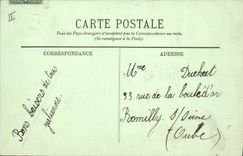 II
CARTE POSTALE
Tous les Pays étrangers n'acceptent pas la Correspondance au recto.
(Se renseigner à la Poste)
CORRESPONDANCE
ADRESSE
Bons baisers de tous
Mme
33 rue de la boule d'or
Romilly s/Seine
(Aube)